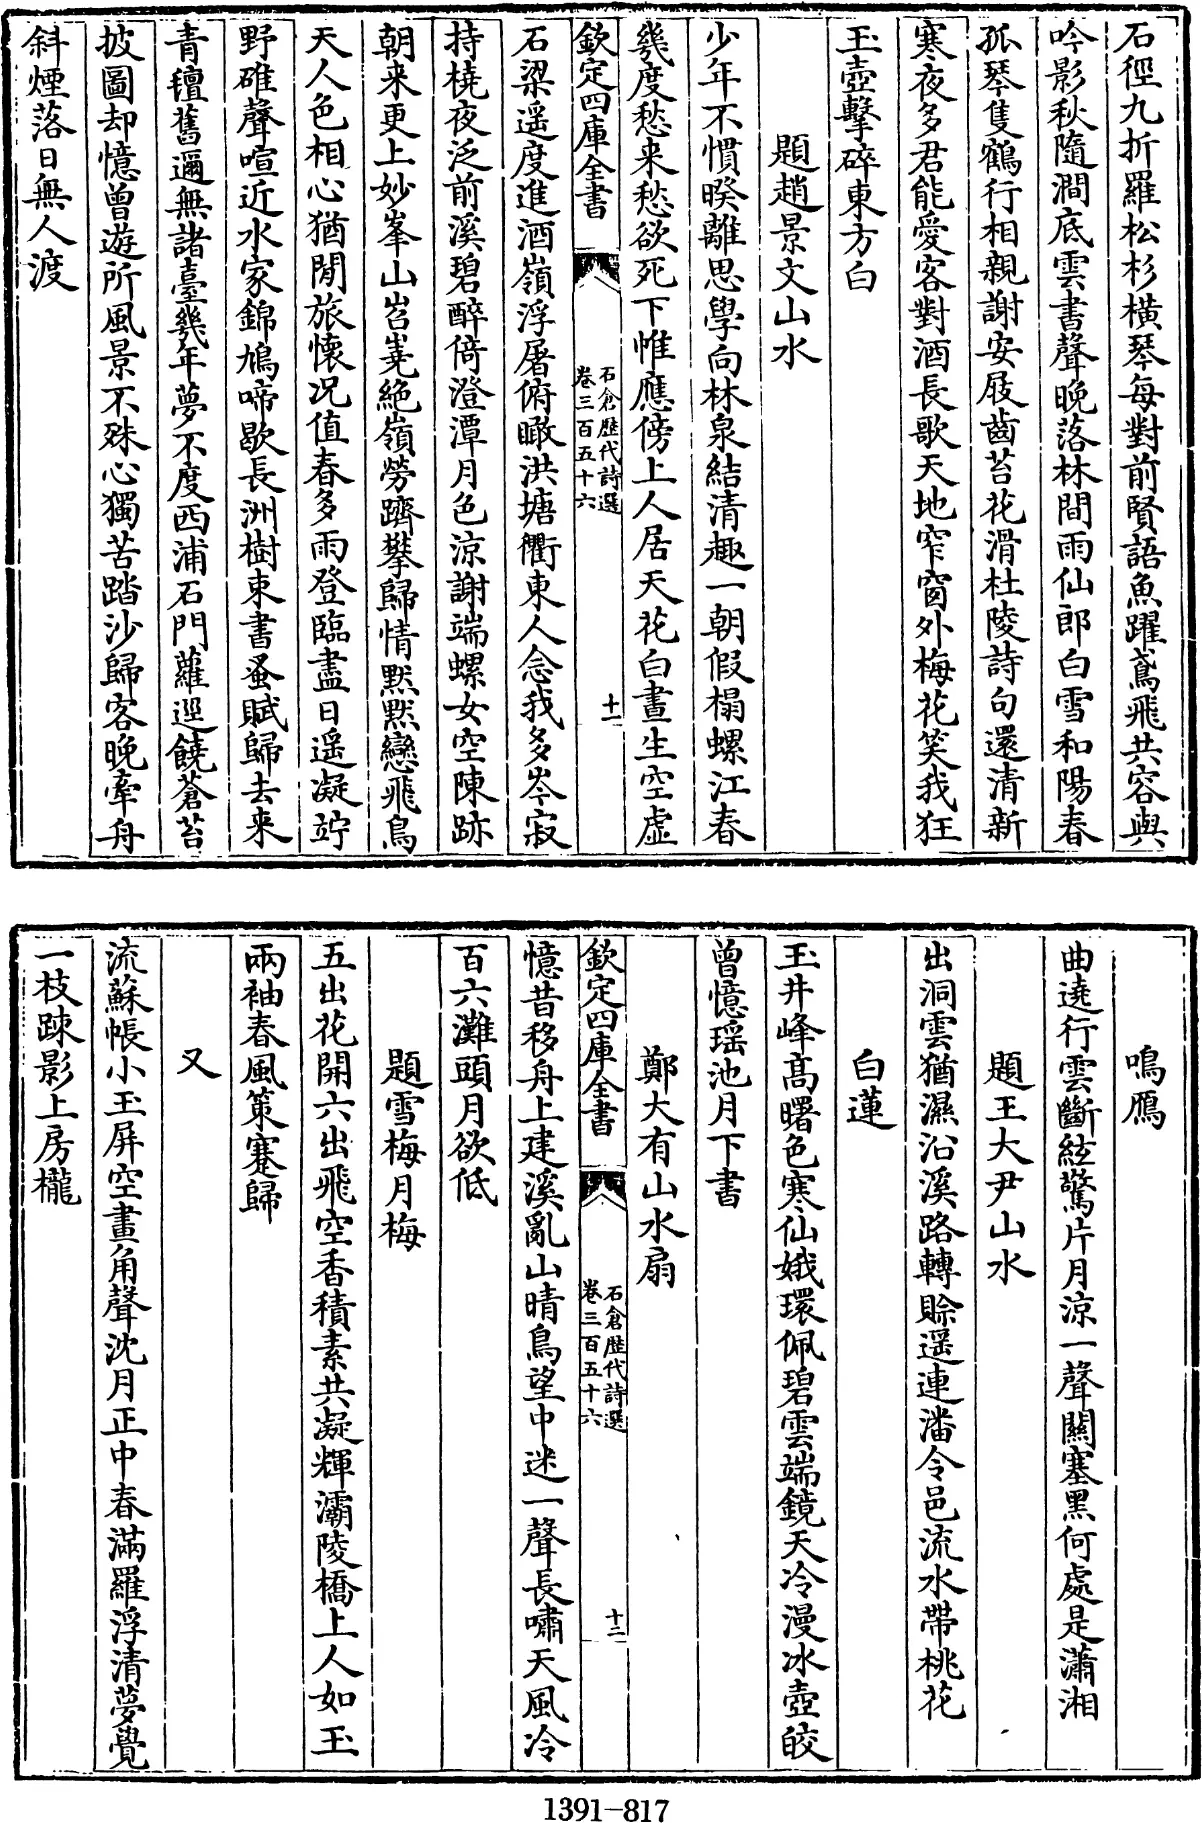 石徑九折羅松杉橫琴每對前賢語魚躍鳶飛共容與
吟影秋隨澗底雲書聲晚落林間雨仙郎白雪和陽春
孤琴隻鶴行相親謝安屐齒苔花滑杜陵詩句還清新
寒夜多君能愛客對酒長歌天地窄窗外梅花笑我狂
玉壺擊碎東方白
題趙景文山水
少年不慣暌離思學向林泉結清趣一朝假榻螺江春
幾度愁来愁欲死下帷應傍上人居天花白晝生空虛
欽定四庫全書
石倉歷代詩選
卷三百五十六
十一
石梁遥度進酒嶺浮屠俯瞰洪塘衢東人念我多岑寂
持橈夜泛前溪碧醉倚澄潭月色涼謝端螺女空陳跡
朝来更上妙峯山岧嶤絶嶺勞躋攀歸情默默戀飛鳥
天人色相心猶閒旅懷况值春多雨登臨盡日遥凝竚
野碓聲喧近水家錦鳩啼歇長洲樹束書蚤賦歸去来
青氊舊邇無諸臺幾年夢不度西浦石門蘿逕饒蒼苔
披圖却憶曾遊所風景不殊心獨苦踏沙歸客晚牽舟
斜煙落日無人渡
鳴鴈
曲遶行雲斷絃驚片月涼一聲關塞黑何處是瀟湘
題王大尹山水
出洞雲猶濕沿溪路轉賒遥連潘令邑流水帶桃花
白蓮
玉井峰髙曙色寒仙娥環佩碧雲端鏡天冷漫冰壺皎
曾憶瑶池月下書
鄭大有山水扇
欽定四庫全書
石倉歷代詩選
卷三百五十六
十二
憶昔移舟上建溪亂山晴鳥望中迷一聲長嘯天風冷
百六灘頭月欲低
題雪梅月梅
五出花開六出飛空香積素共凝輝灞陵橋上人如玉
兩袖春風策蹇歸
又
流蘇帳小玉屏空畫角聲沈月正中春滿羅浮清夢覺
一枝踈影上房櫳
1391-817